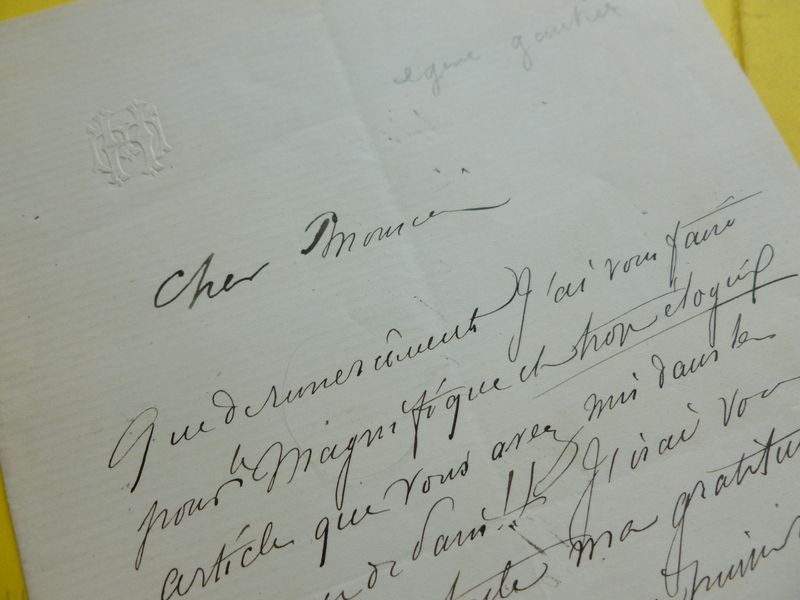 gautier
Cher Monsieur
Que de remerciements J'ai vous faire
pour le magnifique et trop élogieux
article que vous avez mis dans le
de Paris!! J'irai vous
ma gratitu